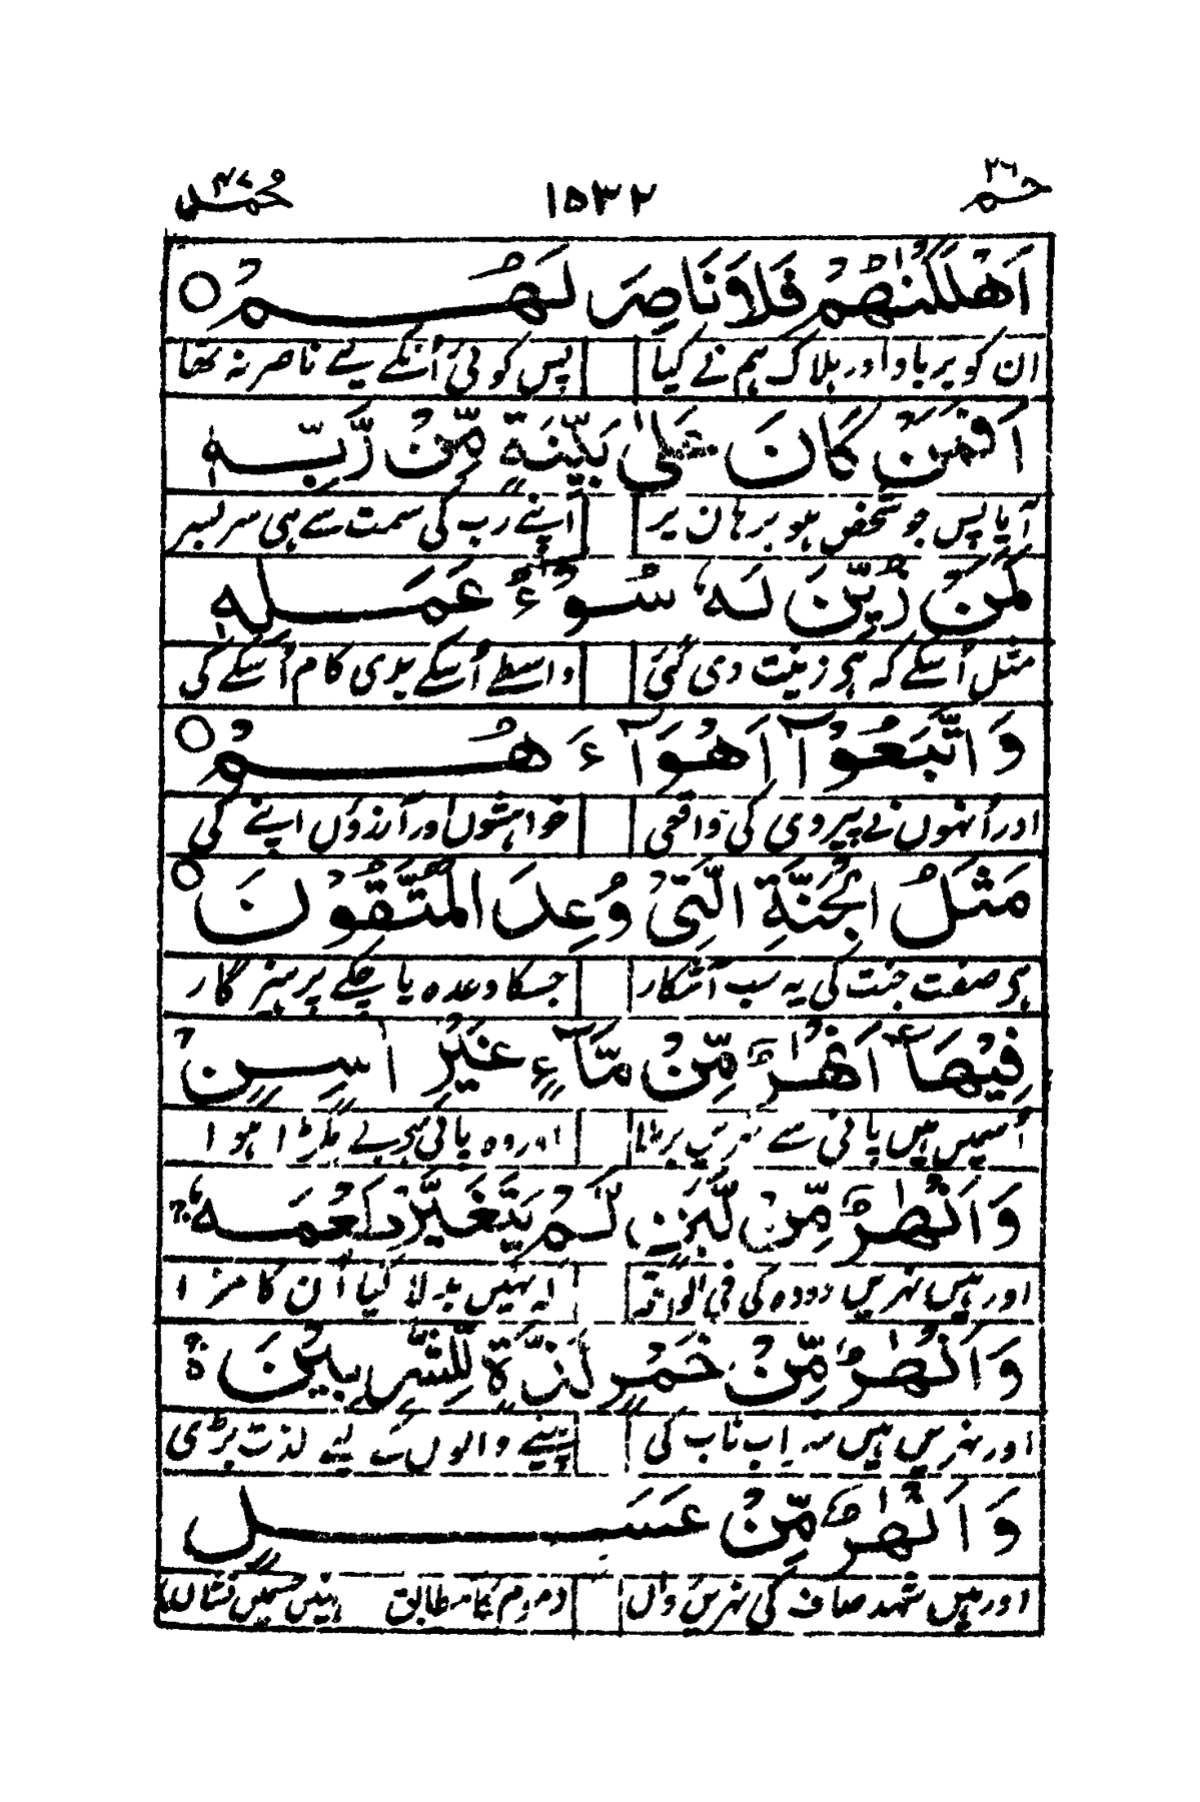 حٰمٓ ۲۶ ۱۵۳۲ مُحمّد ۴۷
اَهْلَكْنٰهُمْ فَلَا نَاصِرَ لَهُمْ ○
ان کو برباد اور ہلاک ہم نے کیا پس کوئی اُنکے لیے ناصر نہ تھا
اَفَمَنْ كَانَ عَلٰى بَيِّنَةٍ مِّنْ رَّبِّهٖ
آیا پس جو شخص ہو برہان پر اپنے رب کی سمت سے ہی سربسر
كَمَنْ زُيِّنَ لَهٗ سُوْٓءُ عَمَلِهٖ
مثل اُسکے کہ ہو زینت دی گئی واسطے اُسکے بدی کام اُسکے کی
وَاتَّبَعُوْٓا اَهْوَآءَهُمْ ○
اور اُنہوں نے پیروی کی واقعی خواہشوں اور آرزوں اپنے کی
مَثَلُ الْجَنَّةِ الَّتِيْ وُعِدَ الْمُتَّقُوْنَ ○
ہی صفت جنت کی یہ سب آشکار جسکا وعدہ پا چکے پرہیزگار
فِيْهَآ اَنْهٰرٌ مِّنْ مَّآءٍ غَيْرِ اٰسِنٍ
اُسمیں ہیں پانی سے نہریں اور وہ پانی ہی بے بگڑا ہوا
وَاَنْهٰرٌ مِّنْ لَّبَنٍ لَّمْ يَتَغَيَّرْ طَعْمُهٗ
اور ہیں نہریں دودہ کی فی الواقع کہ نہیں بدلا گیا اُن کا مزا
وَاَنْهٰرٌ مِّنْ خَمْرٍ لَّذَّةٍ لِّلشّٰرِبِيْنَ ۃ
اور نہریں ہیں شراب ناب کی پینے والوں کے لیے لذت بڑی
وَاَنْهٰرٌ مِّنْ عَسَلٍ
اور ہیں شہد صاف کی نہریں واں